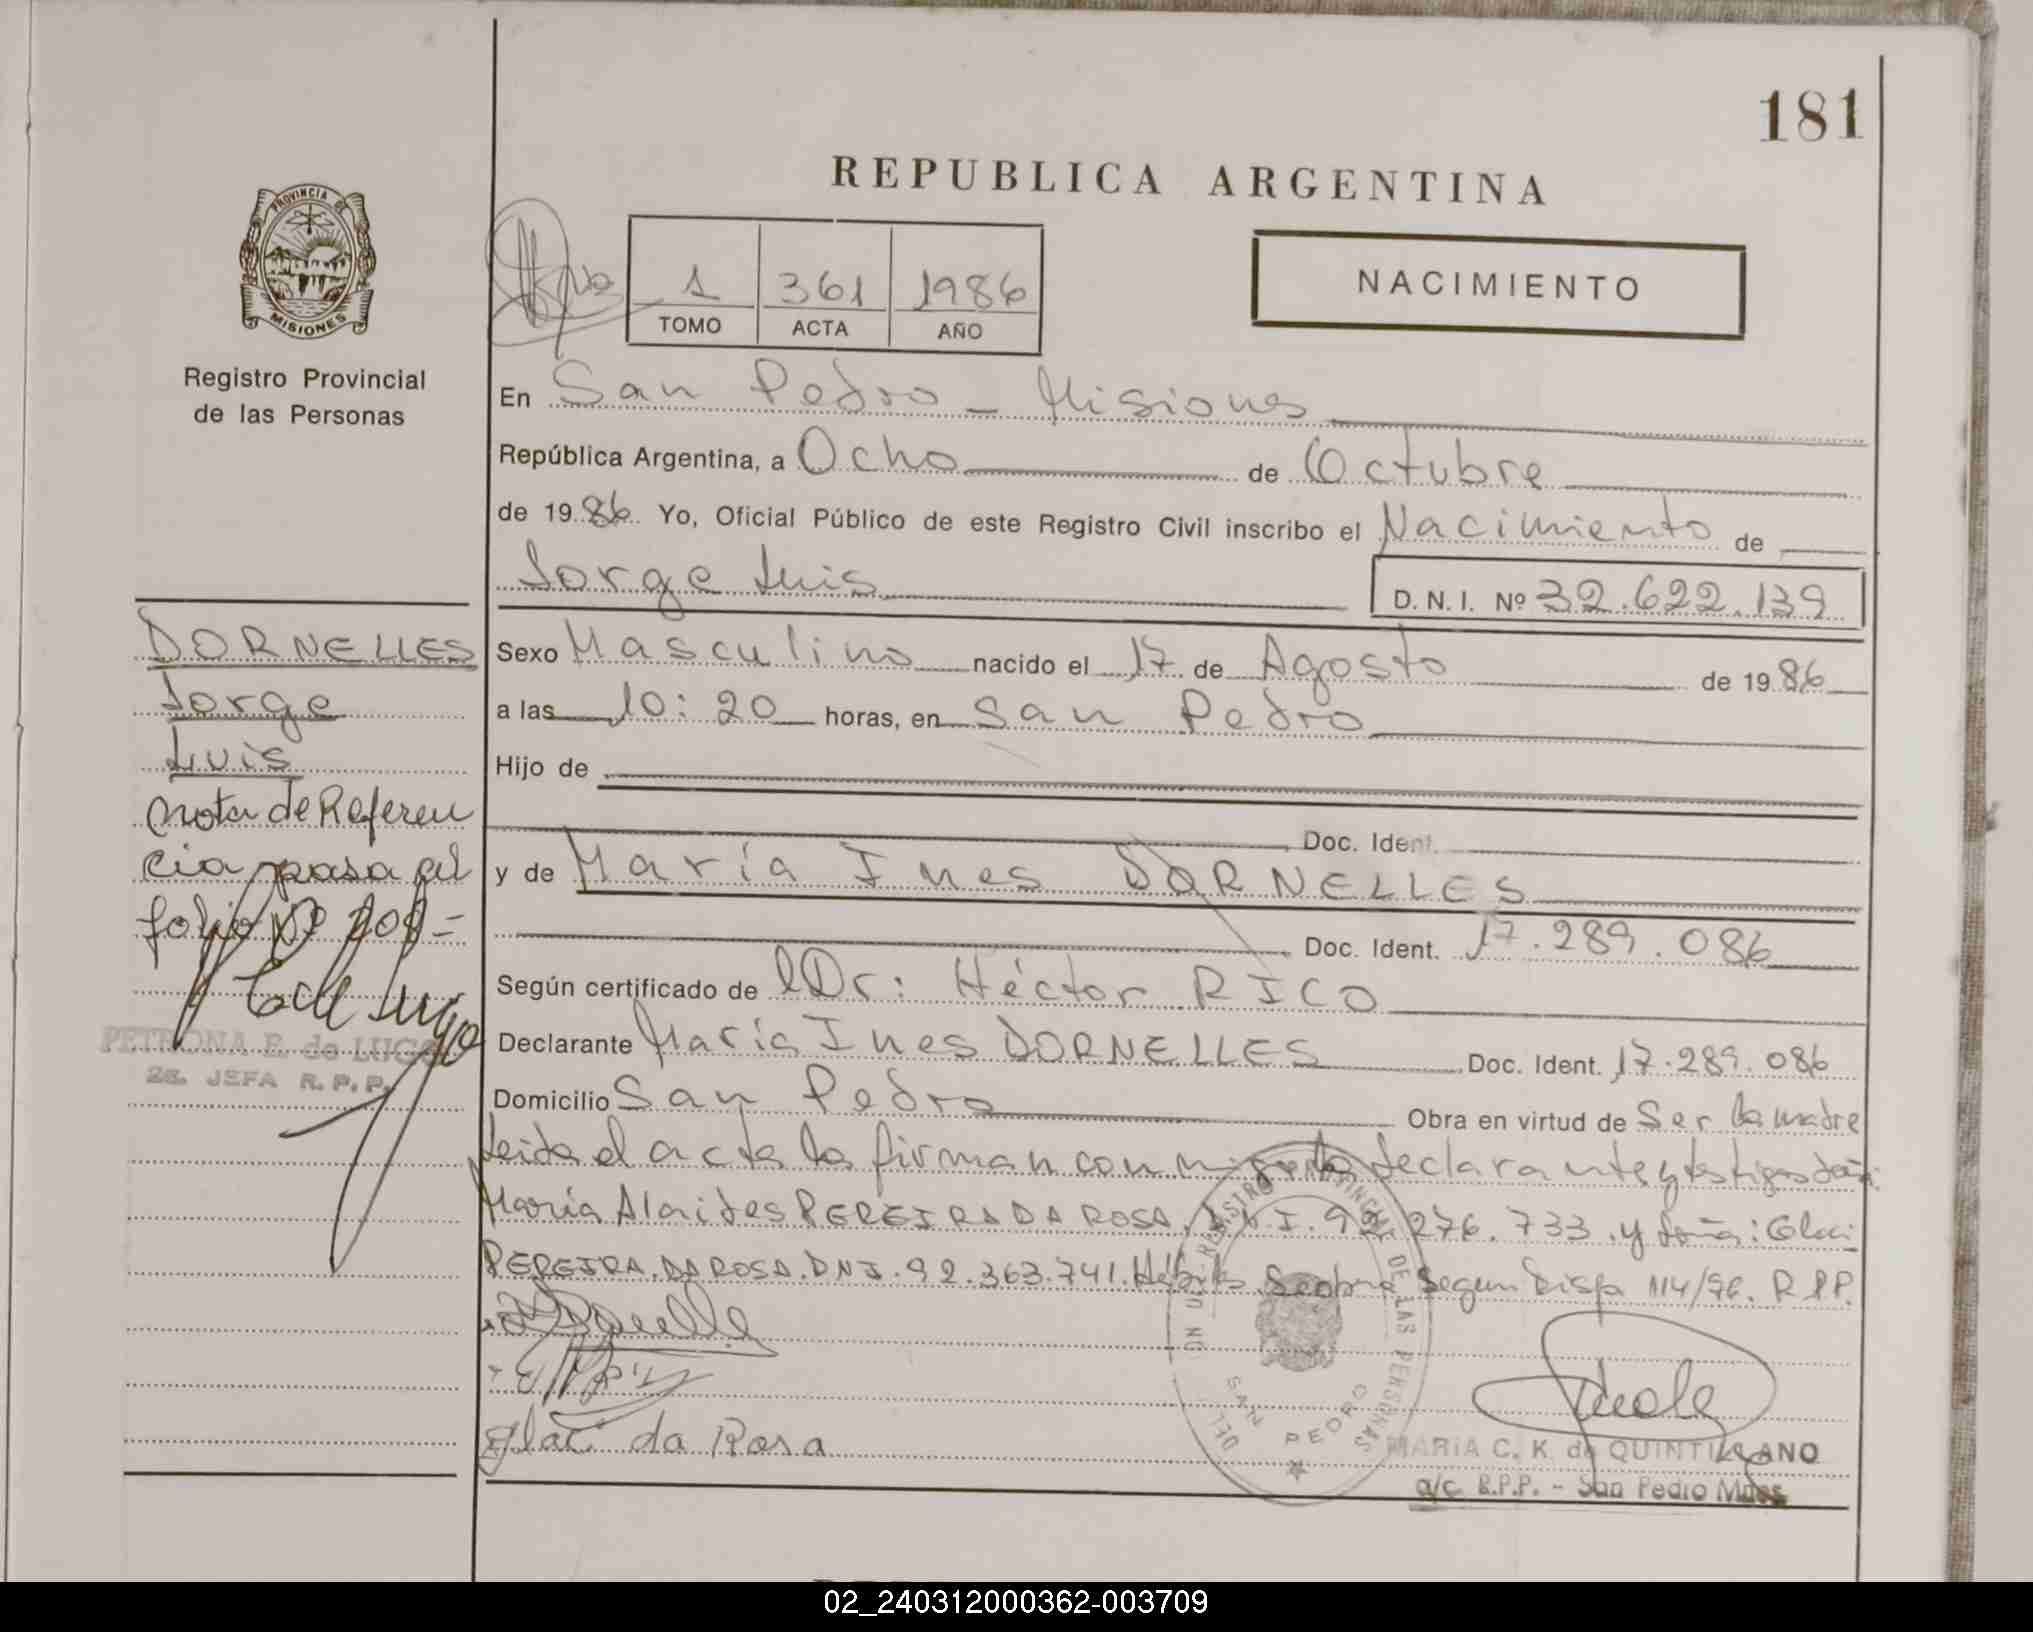 181
REPUBLICA ARGENTINA
PROVINCIA DE
MISIONES
Registro Provincial
de las Personas
1 361 1986
TOMO ACTA AÑO
NACIMIENTO
En San Pedro - Misiones
República Argentina, a Ocho de Octubre
de 1986 Yo, Oficial Público de este Registro Civil inscribo el Nacimiento de
Jorge Luis
D. N. I. Nº 32.622.139
DORNELLES
Jorge
Luis
nota de Referen
cia pasa al
folio Nº 208-
PETRONA E. de LUGO
2a. JEFA R. P. P.
Sexo Masculino nacido el 17 de Agosto de 1986
a las 10:20 horas, en San Pedro
Hijo de
Doc. Ident.
y de María Ines DORNELLES
Doc. Ident. 17.289.086
Según certificado de Dr: Héctor RICO
Declarante María Ines DORNELLES Doc. Ident. 17.289.086
Domicilio San Pedro Obra en virtud de Ser la madre
Leida el acta la firman conmigo la declarante y testigos doña:
María Alaides PEREIRA DA ROSA, D.N.I. 92.276.733. y doña: Glaci
PEREIRA. DA ROSA. DNI. 92.363.741. Hábiles Se obra Segun Disp 114/76. R P P.
Glaci da Rosa
REGISTRO PROVINCIAL DE LAS PERSONAS
SAN PEDRO
MARIA C. K. de QUINTILLANO
a/c R.P.P. - San Pedro Mnes
02_240312000362-003709